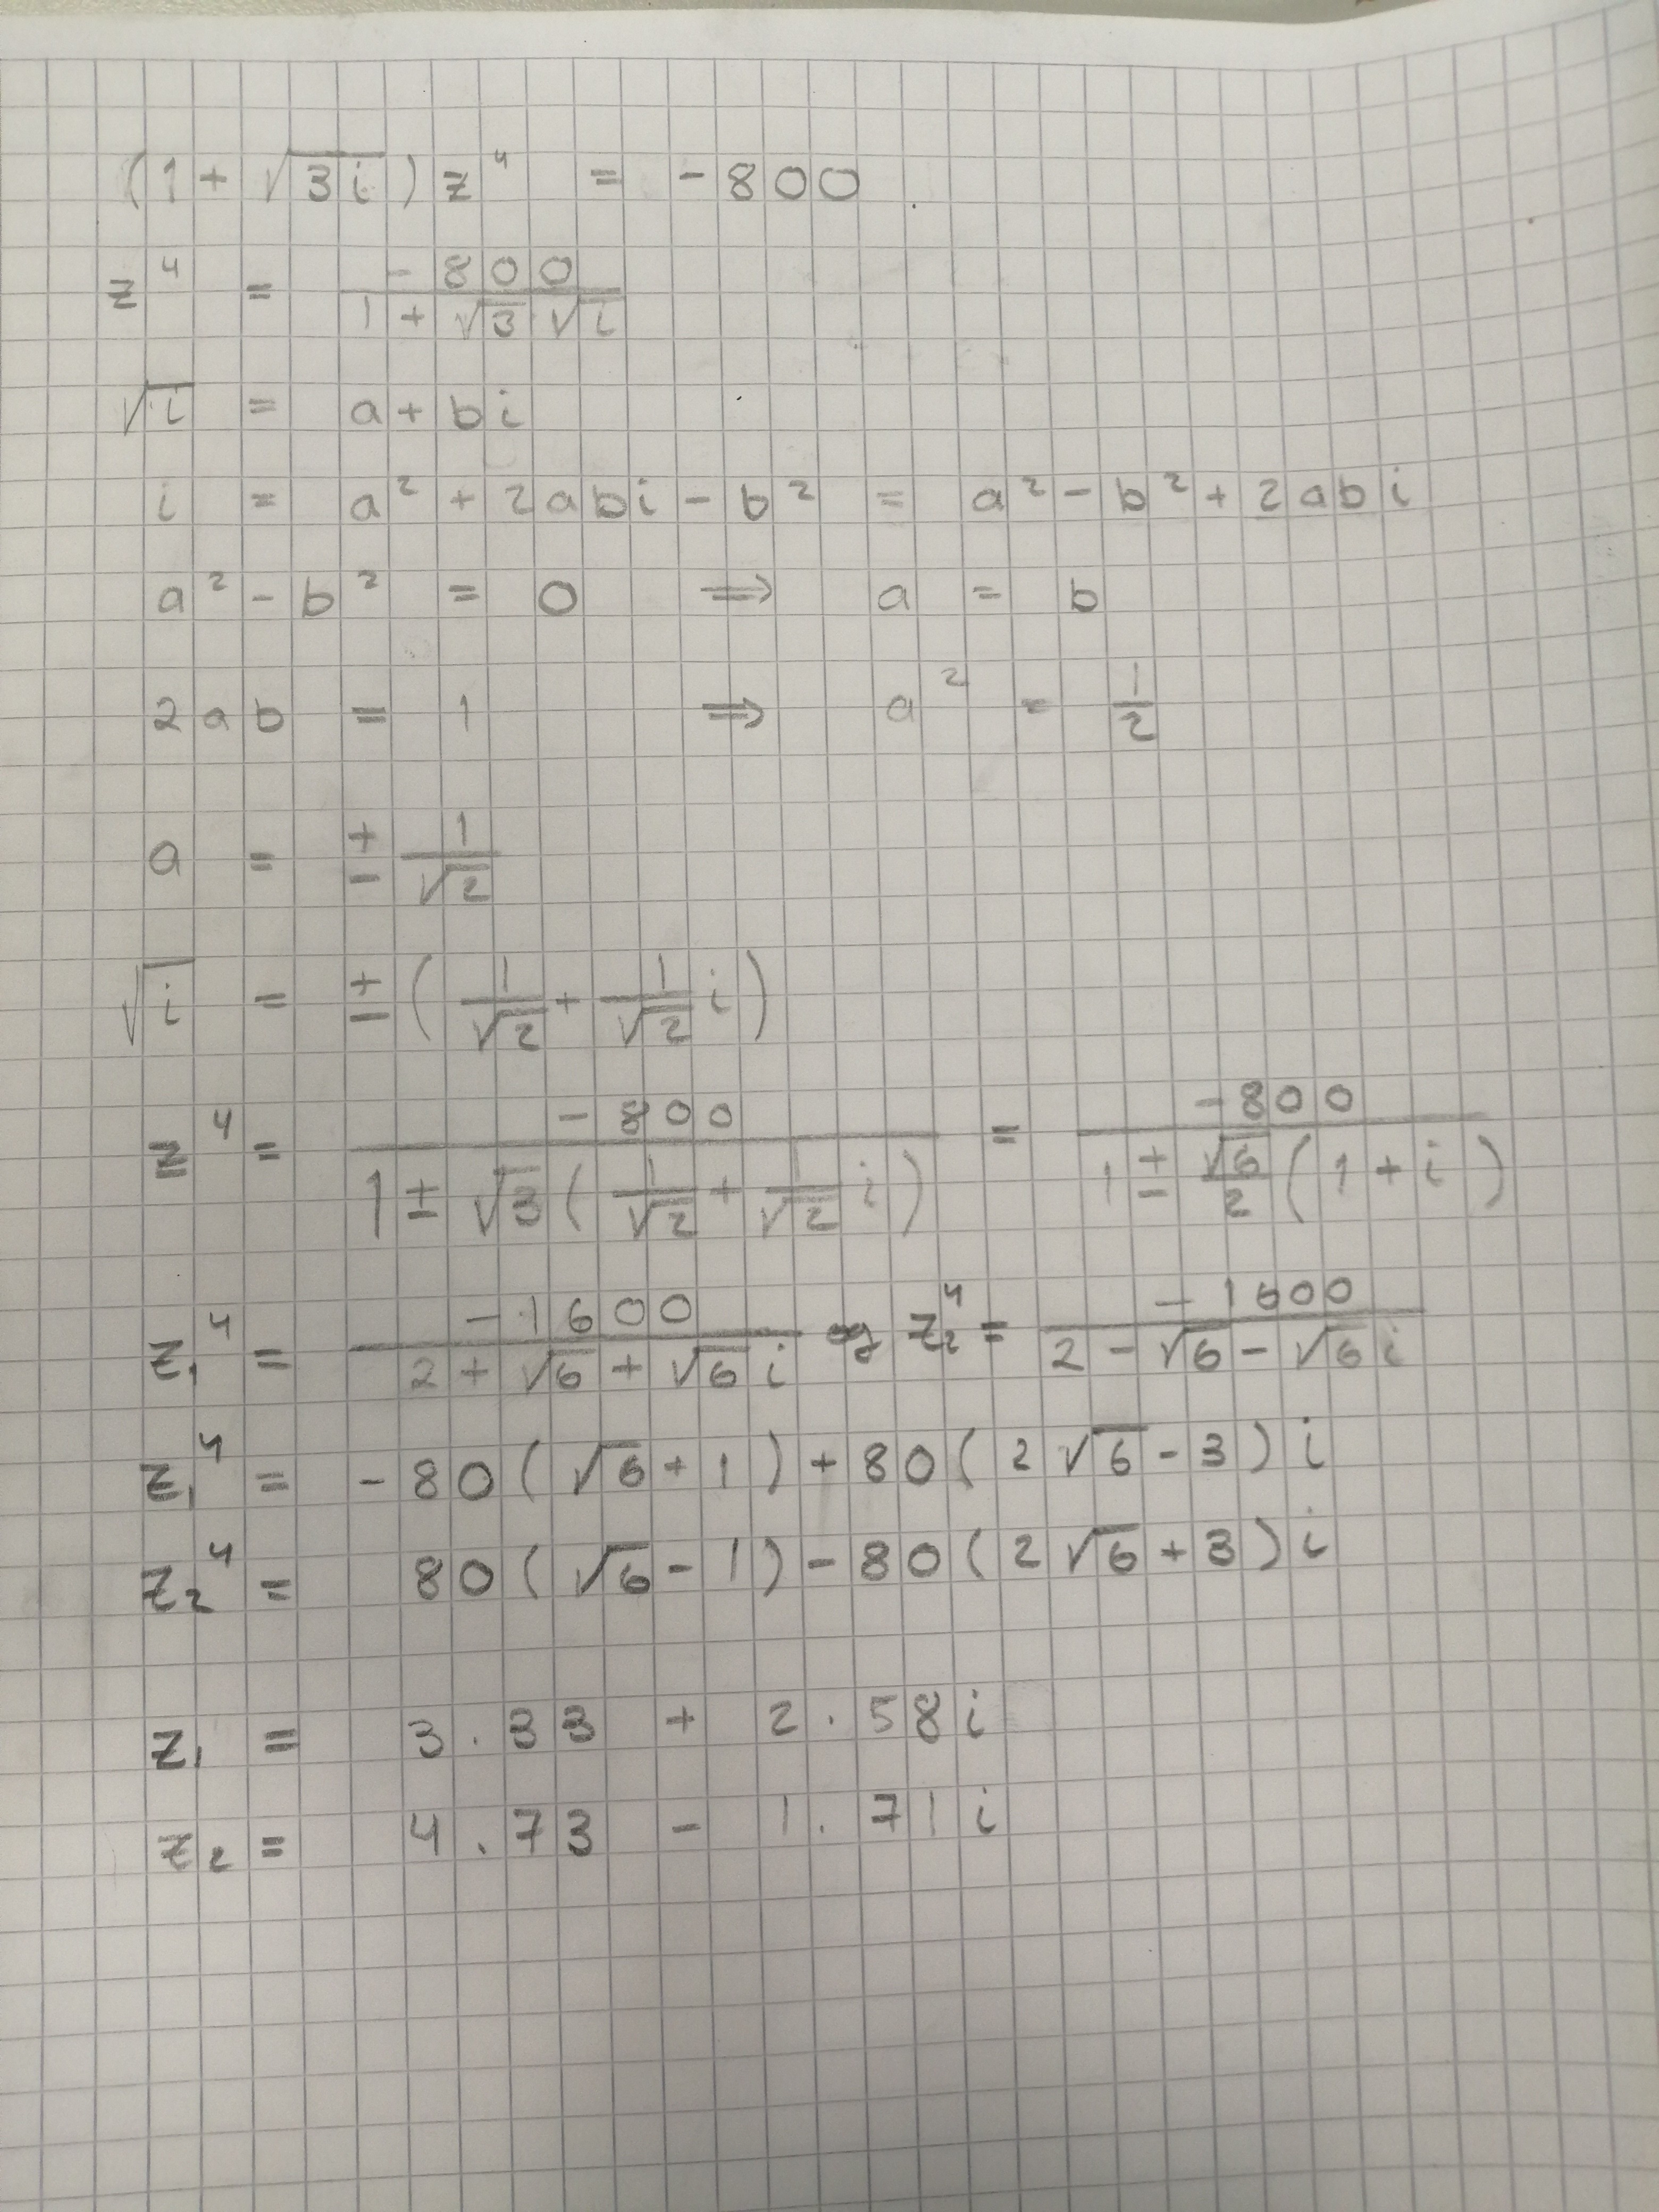 (1 + √(3i)) z⁴ = -800
z⁴ = -800 / (1 + √3 √i)
√i = a + bi
i = a² + 2abi - b² = a² - b² + 2abi
a² - b² = 0 ⟹ a = b
2ab = 1 ⟹ a² = 1/2
a = ± 1/√2
√i = ± (1/√2 + 1/√2 i)
z⁴ = -800 / (1 ± √3 (1/√2 + 1/√2 i)) = -800 / (1 ± √6/2 (1 + i))
z₁⁴ = -1600 / (2 + √6 + √6 i) og z₂⁴ = -1600 / (2 - √6 - √6 i)
z₁⁴ = -80(√6 + 1) + 80(2√6 - 3)i
z₂⁴ = 80(√6 - 1) - 80(2√6 + 3)i
z₁ = 3.33 + 2.58i
z₂ = 4.73 - 1.71i